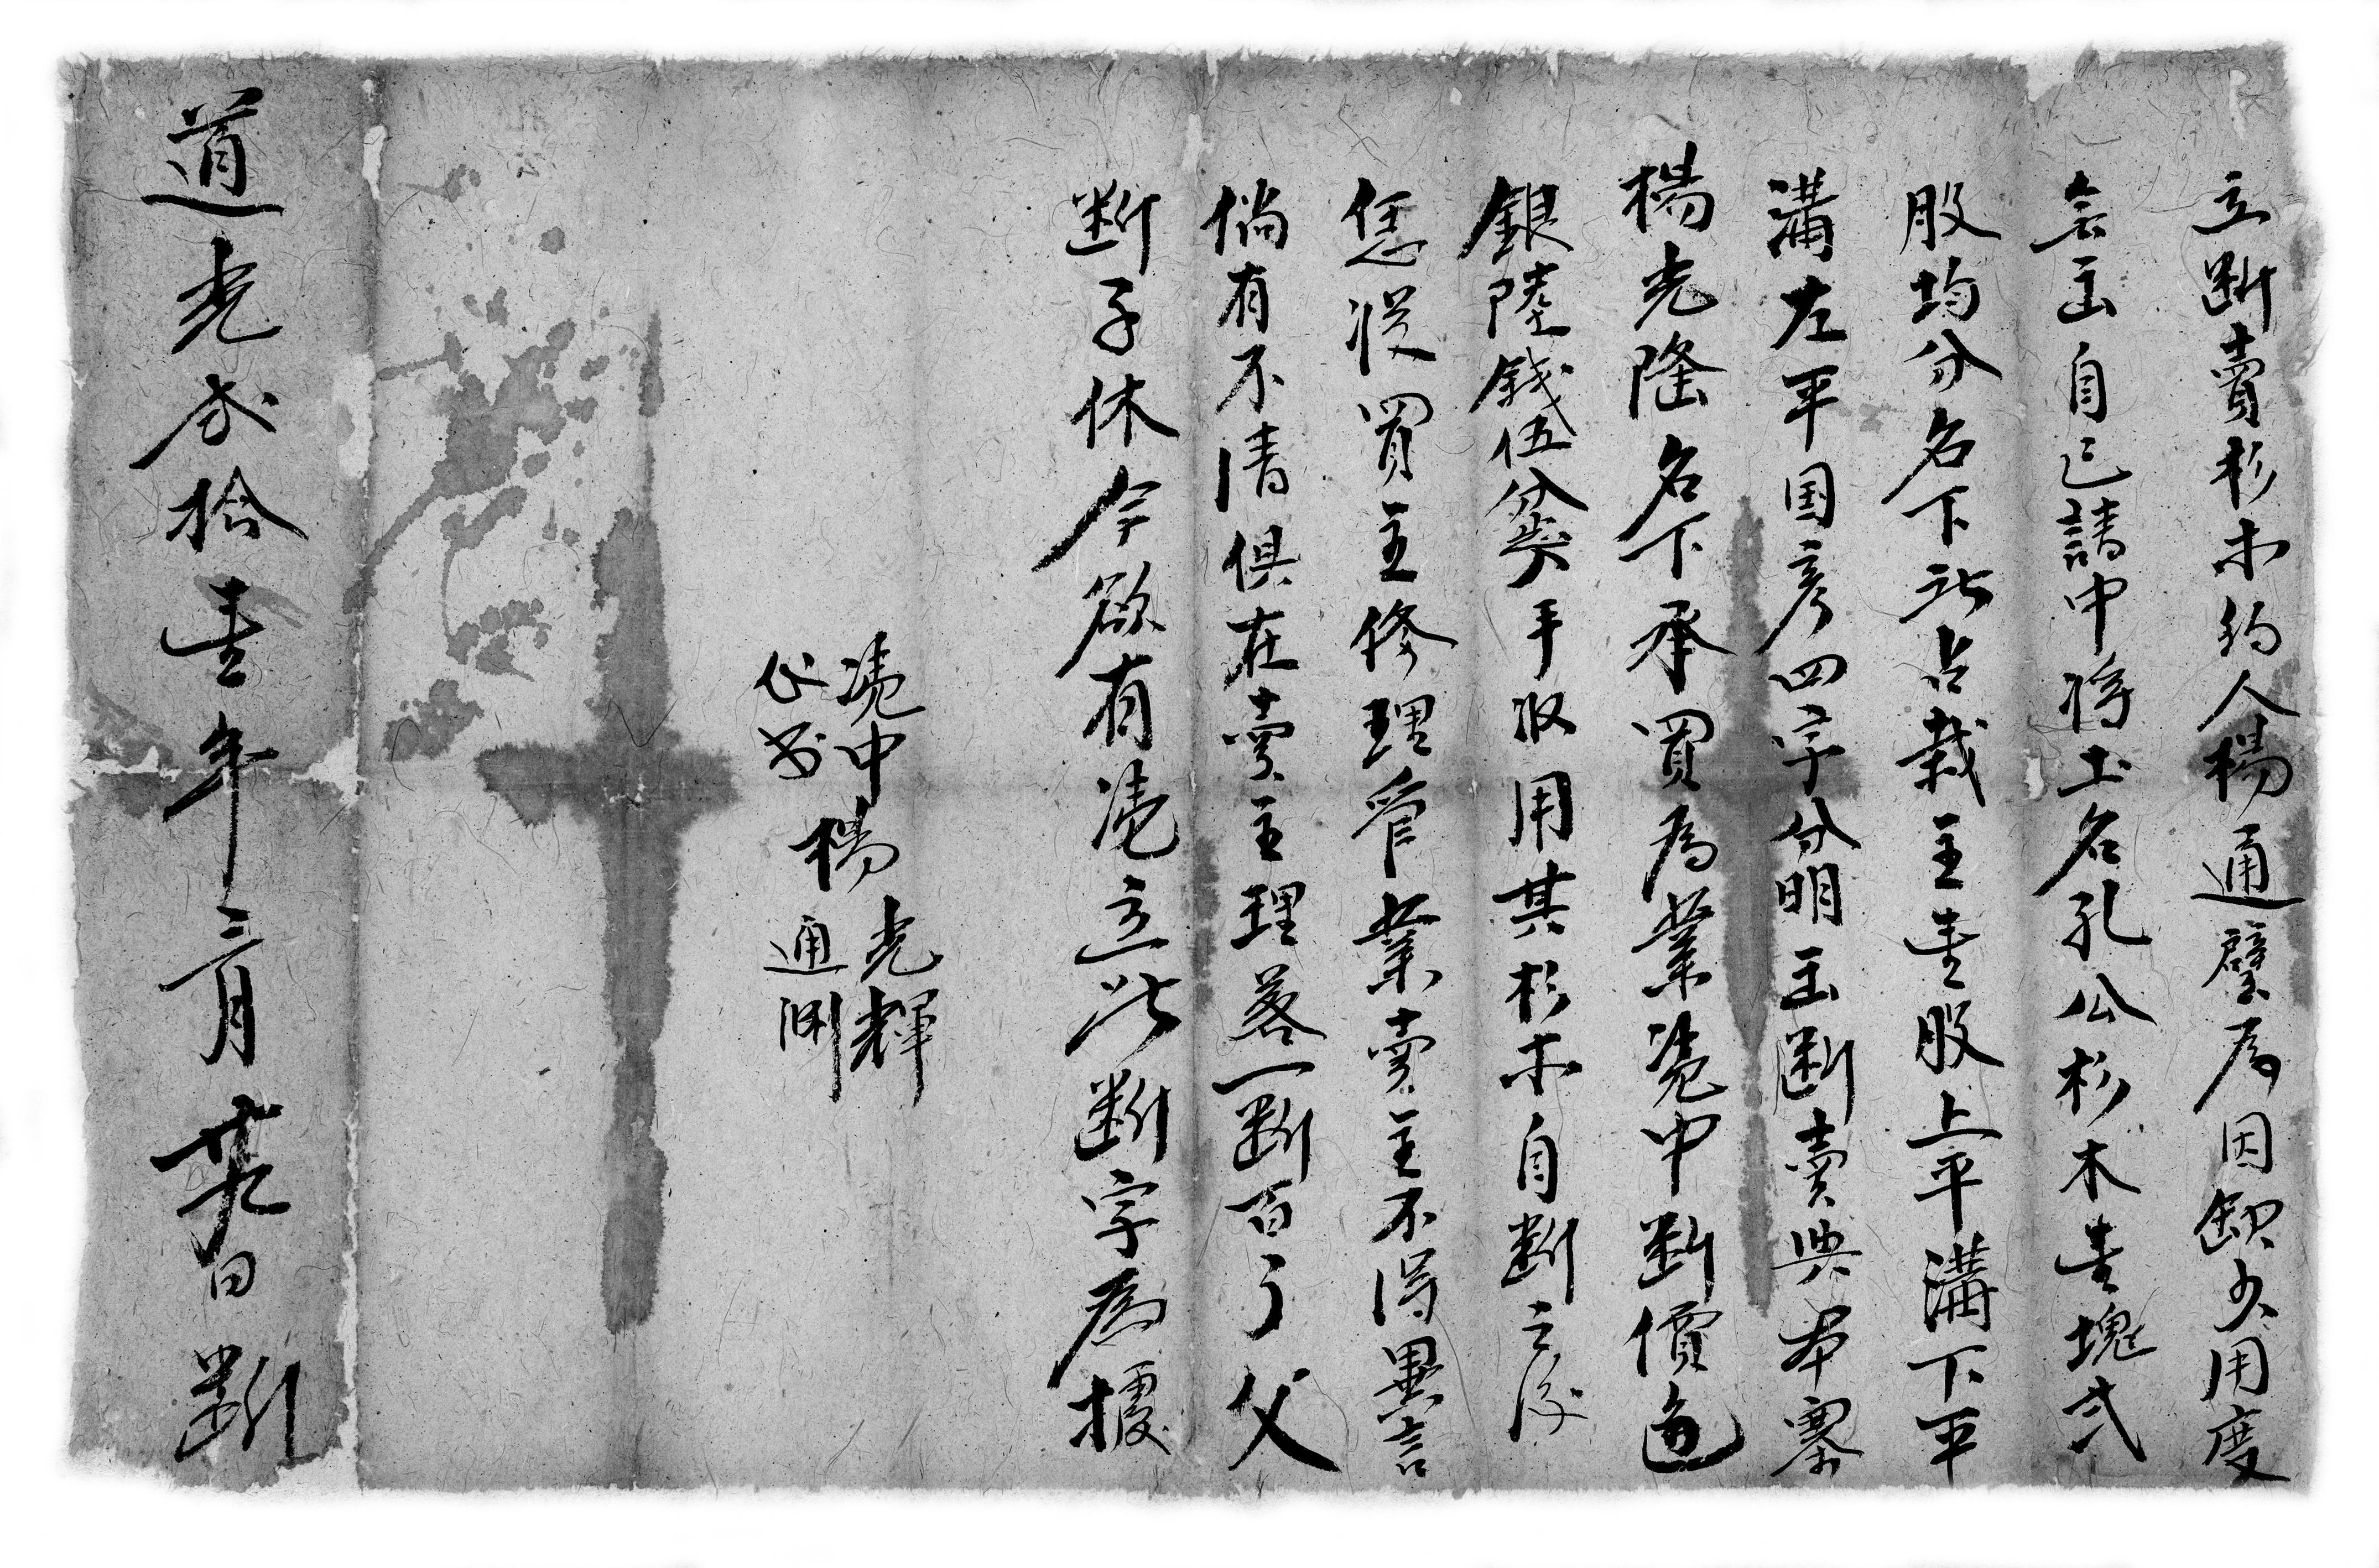 立断賣杉木約人楊通壁為因缺少用度
無出自己請中將土名孔公杉木壹塊弍
股均分名下所占栽主壹股上平溝下平
溝左平国彦四字分明出断賣與本寨
楊光隆名下承買為業凴中断價色
銀陸錢伍分入手收用其杉木自断之後
恁從買主修理管業賣主不得異言
倘有不清俱在賣主理落一断百了父
断子休今欲有凴立此断字為據
凴中 楊 光輝
代书 楊 通淵
道光弍拾壹年三月廿九日 断